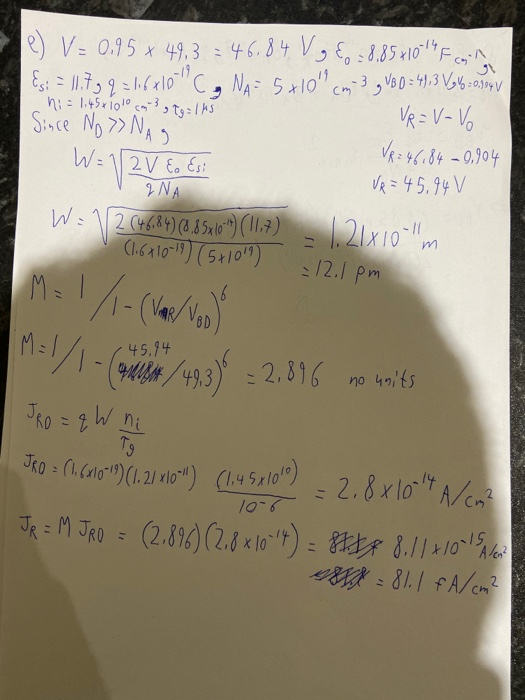 e) V = 0.95 × 49.3 = 46.84 V, ε₀ = 8.85×10⁻¹⁴ F cm⁻¹,
εsi = 11.7, q = 1.6×10⁻¹⁹ C, NA = 5×10¹⁹ cm⁻³, VBD = 49.3 V, V₀ = 0.904 V
ni = 1.45×10¹⁰ cm⁻³, τg = 1 μs
Since ND >> NA,
VR = V - V₀
VR = 46.84 - 0.904
VR = 45.94 V
W = √(2 V ε₀ εsi / q NA)
W = √(2 (46.84)(8.85×10⁻¹⁴)(11.7) / (1.6×10⁻¹⁹)(5×10¹⁹)) = 1.21×10⁻¹¹ m
= 12.1 pm
M = 1 / 1 - (VR/VBD)⁶
M = 1 / 1 - (45.94/49.3)⁶ = 2.896 no units
JRO = q W ni/τg
JRO = (1.6×10⁻¹⁹)(1.21×10⁻¹¹) (1.45×10¹⁰)/10⁻⁶ = 2.8×10⁻¹⁴ A/cm²
JR = M JRO = (2.896)(2.8×10⁻¹⁴) = 8.11×10⁻¹⁵ A/cm²
= 81.1 fA/cm²